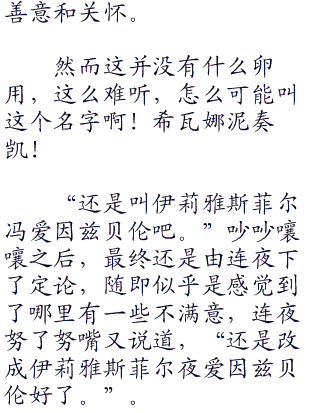 善意和关怀。
然而这并没有什么卵
用，这么难听，怎么可能叫
这个名字啊！希瓦娜泥奏
凯！
“还是叫伊莉雅斯菲尔
冯爱因兹贝伦吧。”吵吵嚷
嚷之后，最终还是由连夜下
了定论，随即似乎是感觉到
了哪里有一些不满意，连夜
努了努嘴又说道，“还是改
成伊莉雅斯菲尔夜爱因兹贝
伦好了。”。